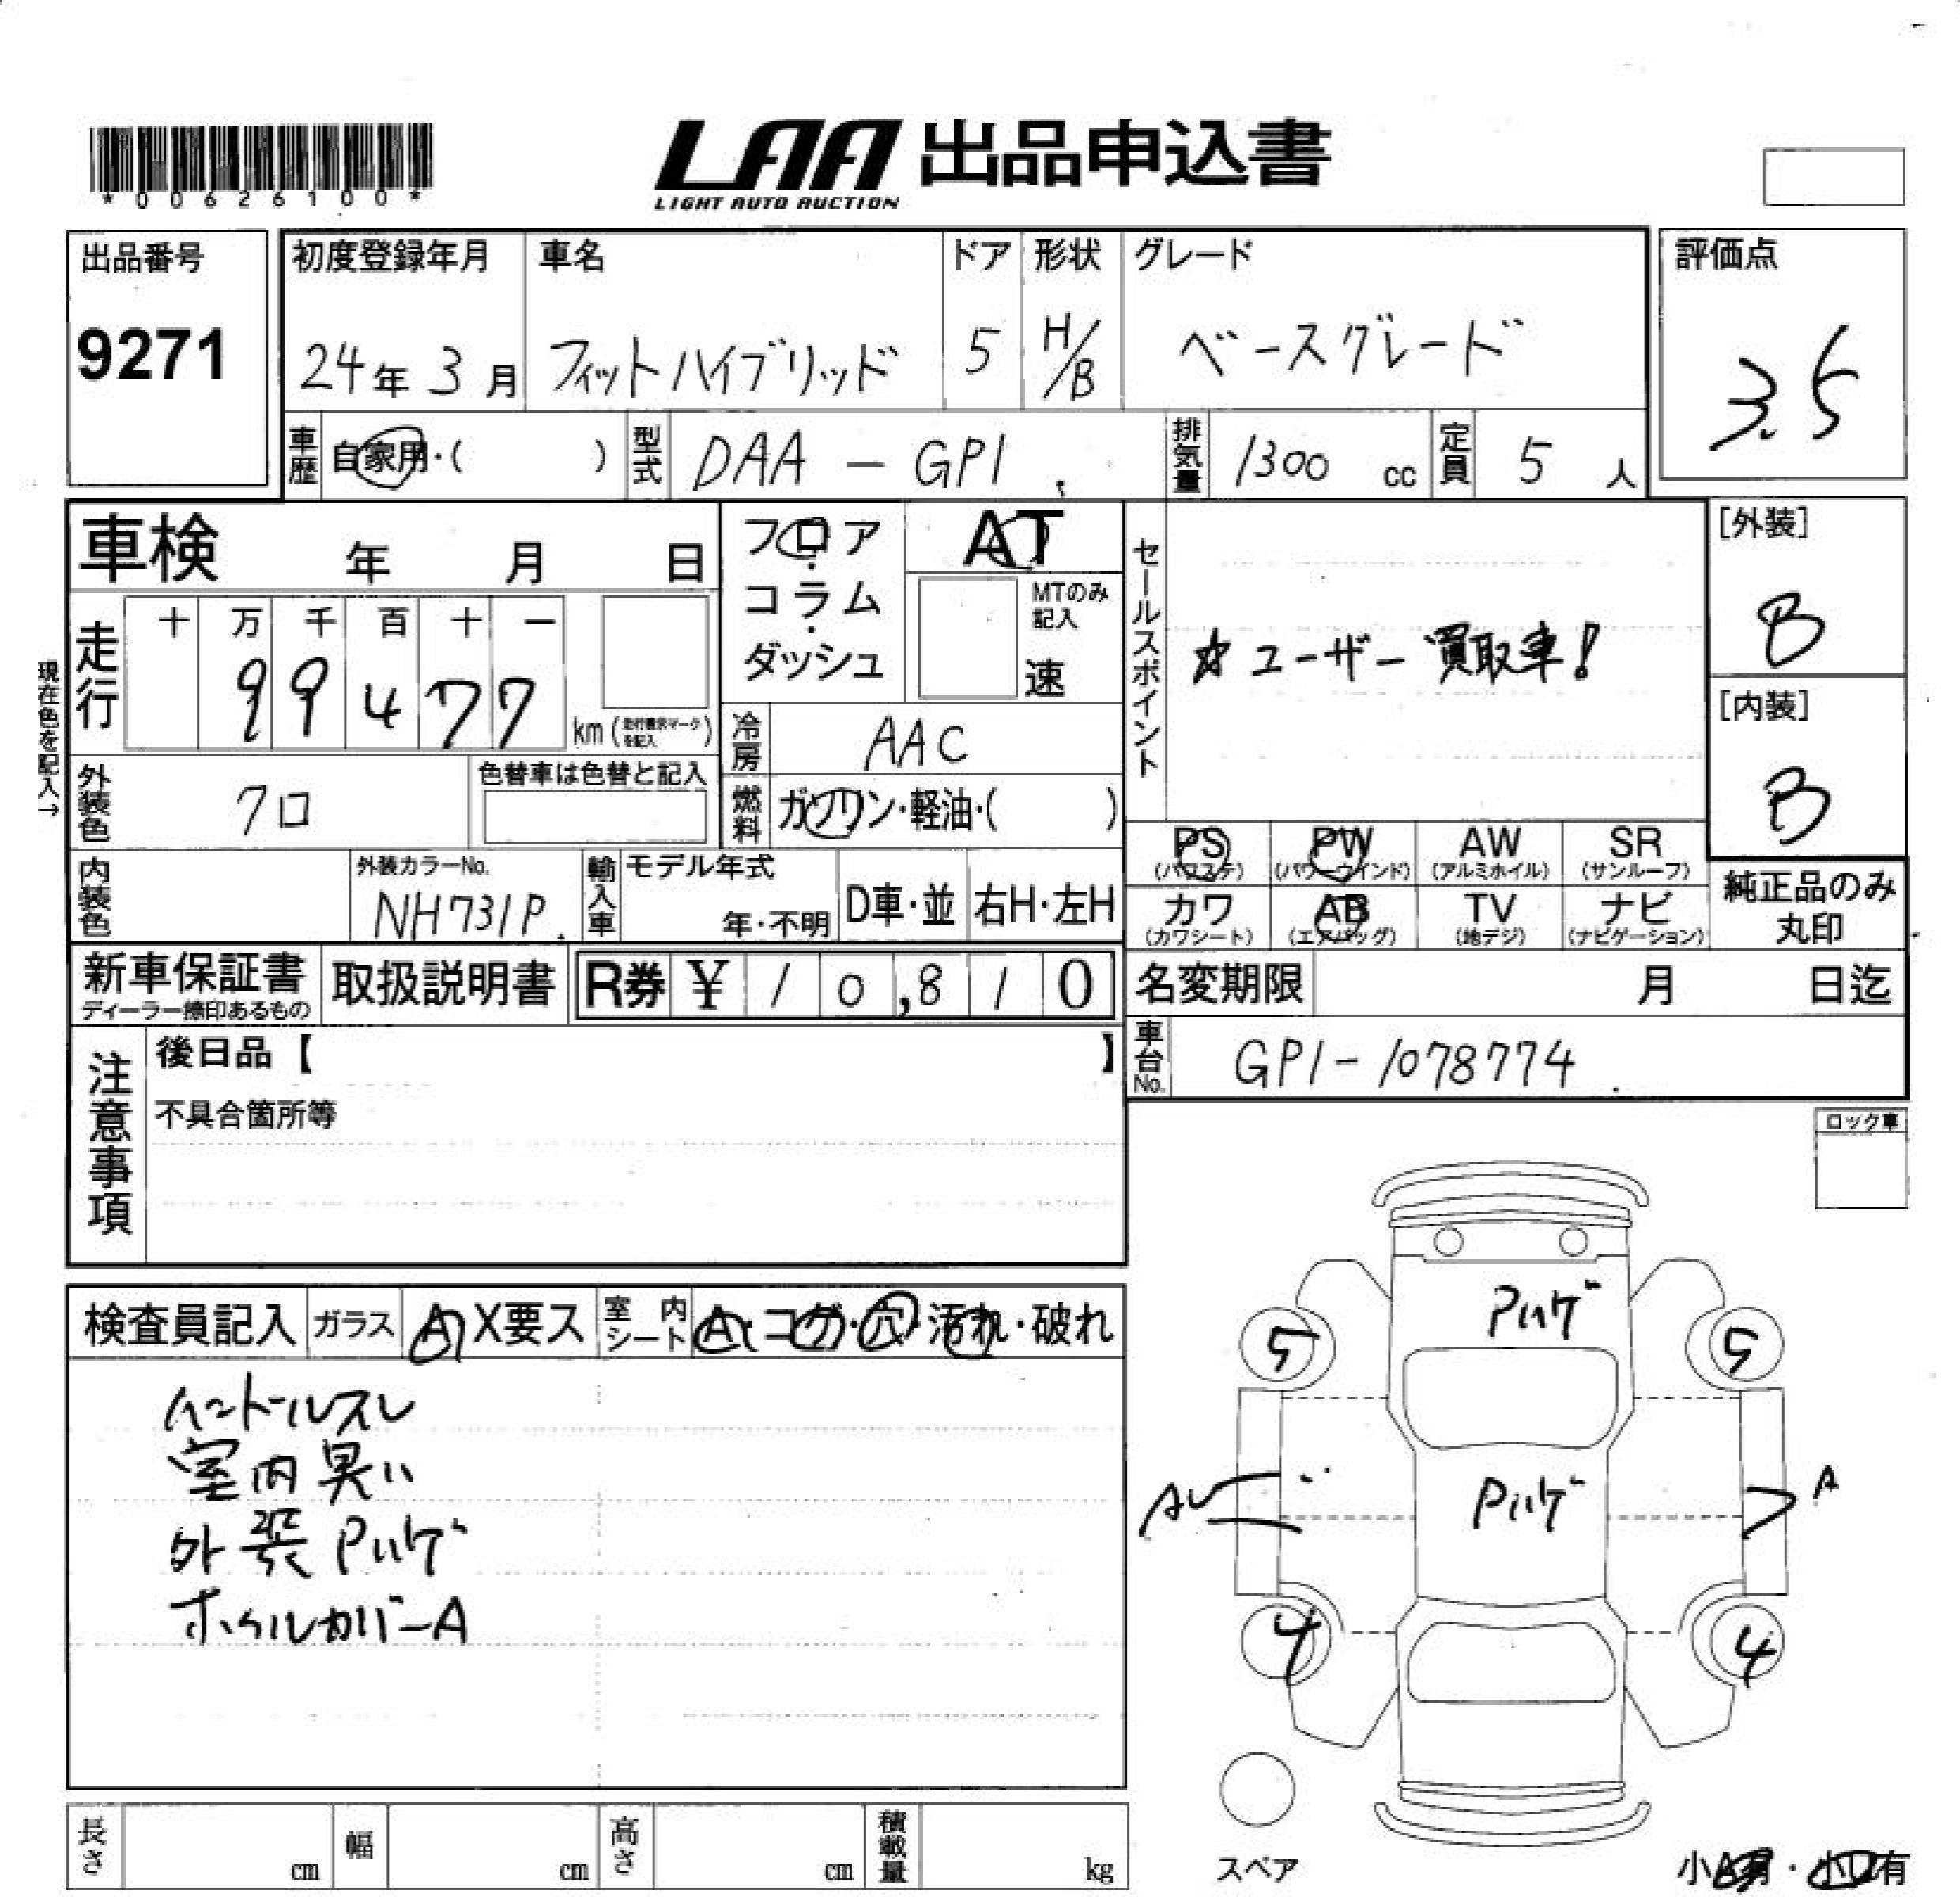 *00626100*
LAA 出品申込書
LIGHT AUTO AUCTION
出品番号
9271
初度登録年月
24年 3月
車名
フィットハイブリッド
ドア
5
形状
H/B
グレード
ベースグレード
評価点
3.5
車歴
自家用・( )
型式
DAA - GP1
排気量
1300 cc
定員
5 人
車検 年 月 日
フロア
・
コラム
・
ダッシュ
AT
MTのみ
記入
速
セールスポイント
☆ユーザー買取車!
[外装]
B
[内装]
B
現在色を記入→
走行
十 万 千 百 十 一
9 9 4 7 7
km
冷房
AAC
外装色
クロ
色替車は色替と記入
燃料
ガソリン・軽油・( )
PS
(パワステ)
PW
(パワーウインド)
AW
(アルミホイル)
SR
(サンルーフ)
カワ
(カワシート)
AB
(エアバッグ)
TV
(地デジ)
ナビ
(ナビゲーション)
純正品のみ
丸印
内装色
外装カラーNo.
NH731P.
輸入車
モデル年式
年・不明
D車・並
右H・左H
新車保証書
ディーラー捺印あるもの
取扱説明書
R券 ¥ 10,810
名変期限 月 日迄
車台No.
GP1-1078774
注意事項
後日品【 】
不具合箇所等
ロック車
検査員記入
ガラス
A X要ス
室内
シート
A・コゲ・穴・汚れ・破れ
ハンドルスレ
室内臭い
外装Pハゲ
ホイルカバーA
Pハゲ
5
5
Pハゲ
AU
A
4
4
長さ
cm
幅
cm
高さ
cm
積載量
kg
スペア
小A有・小U有